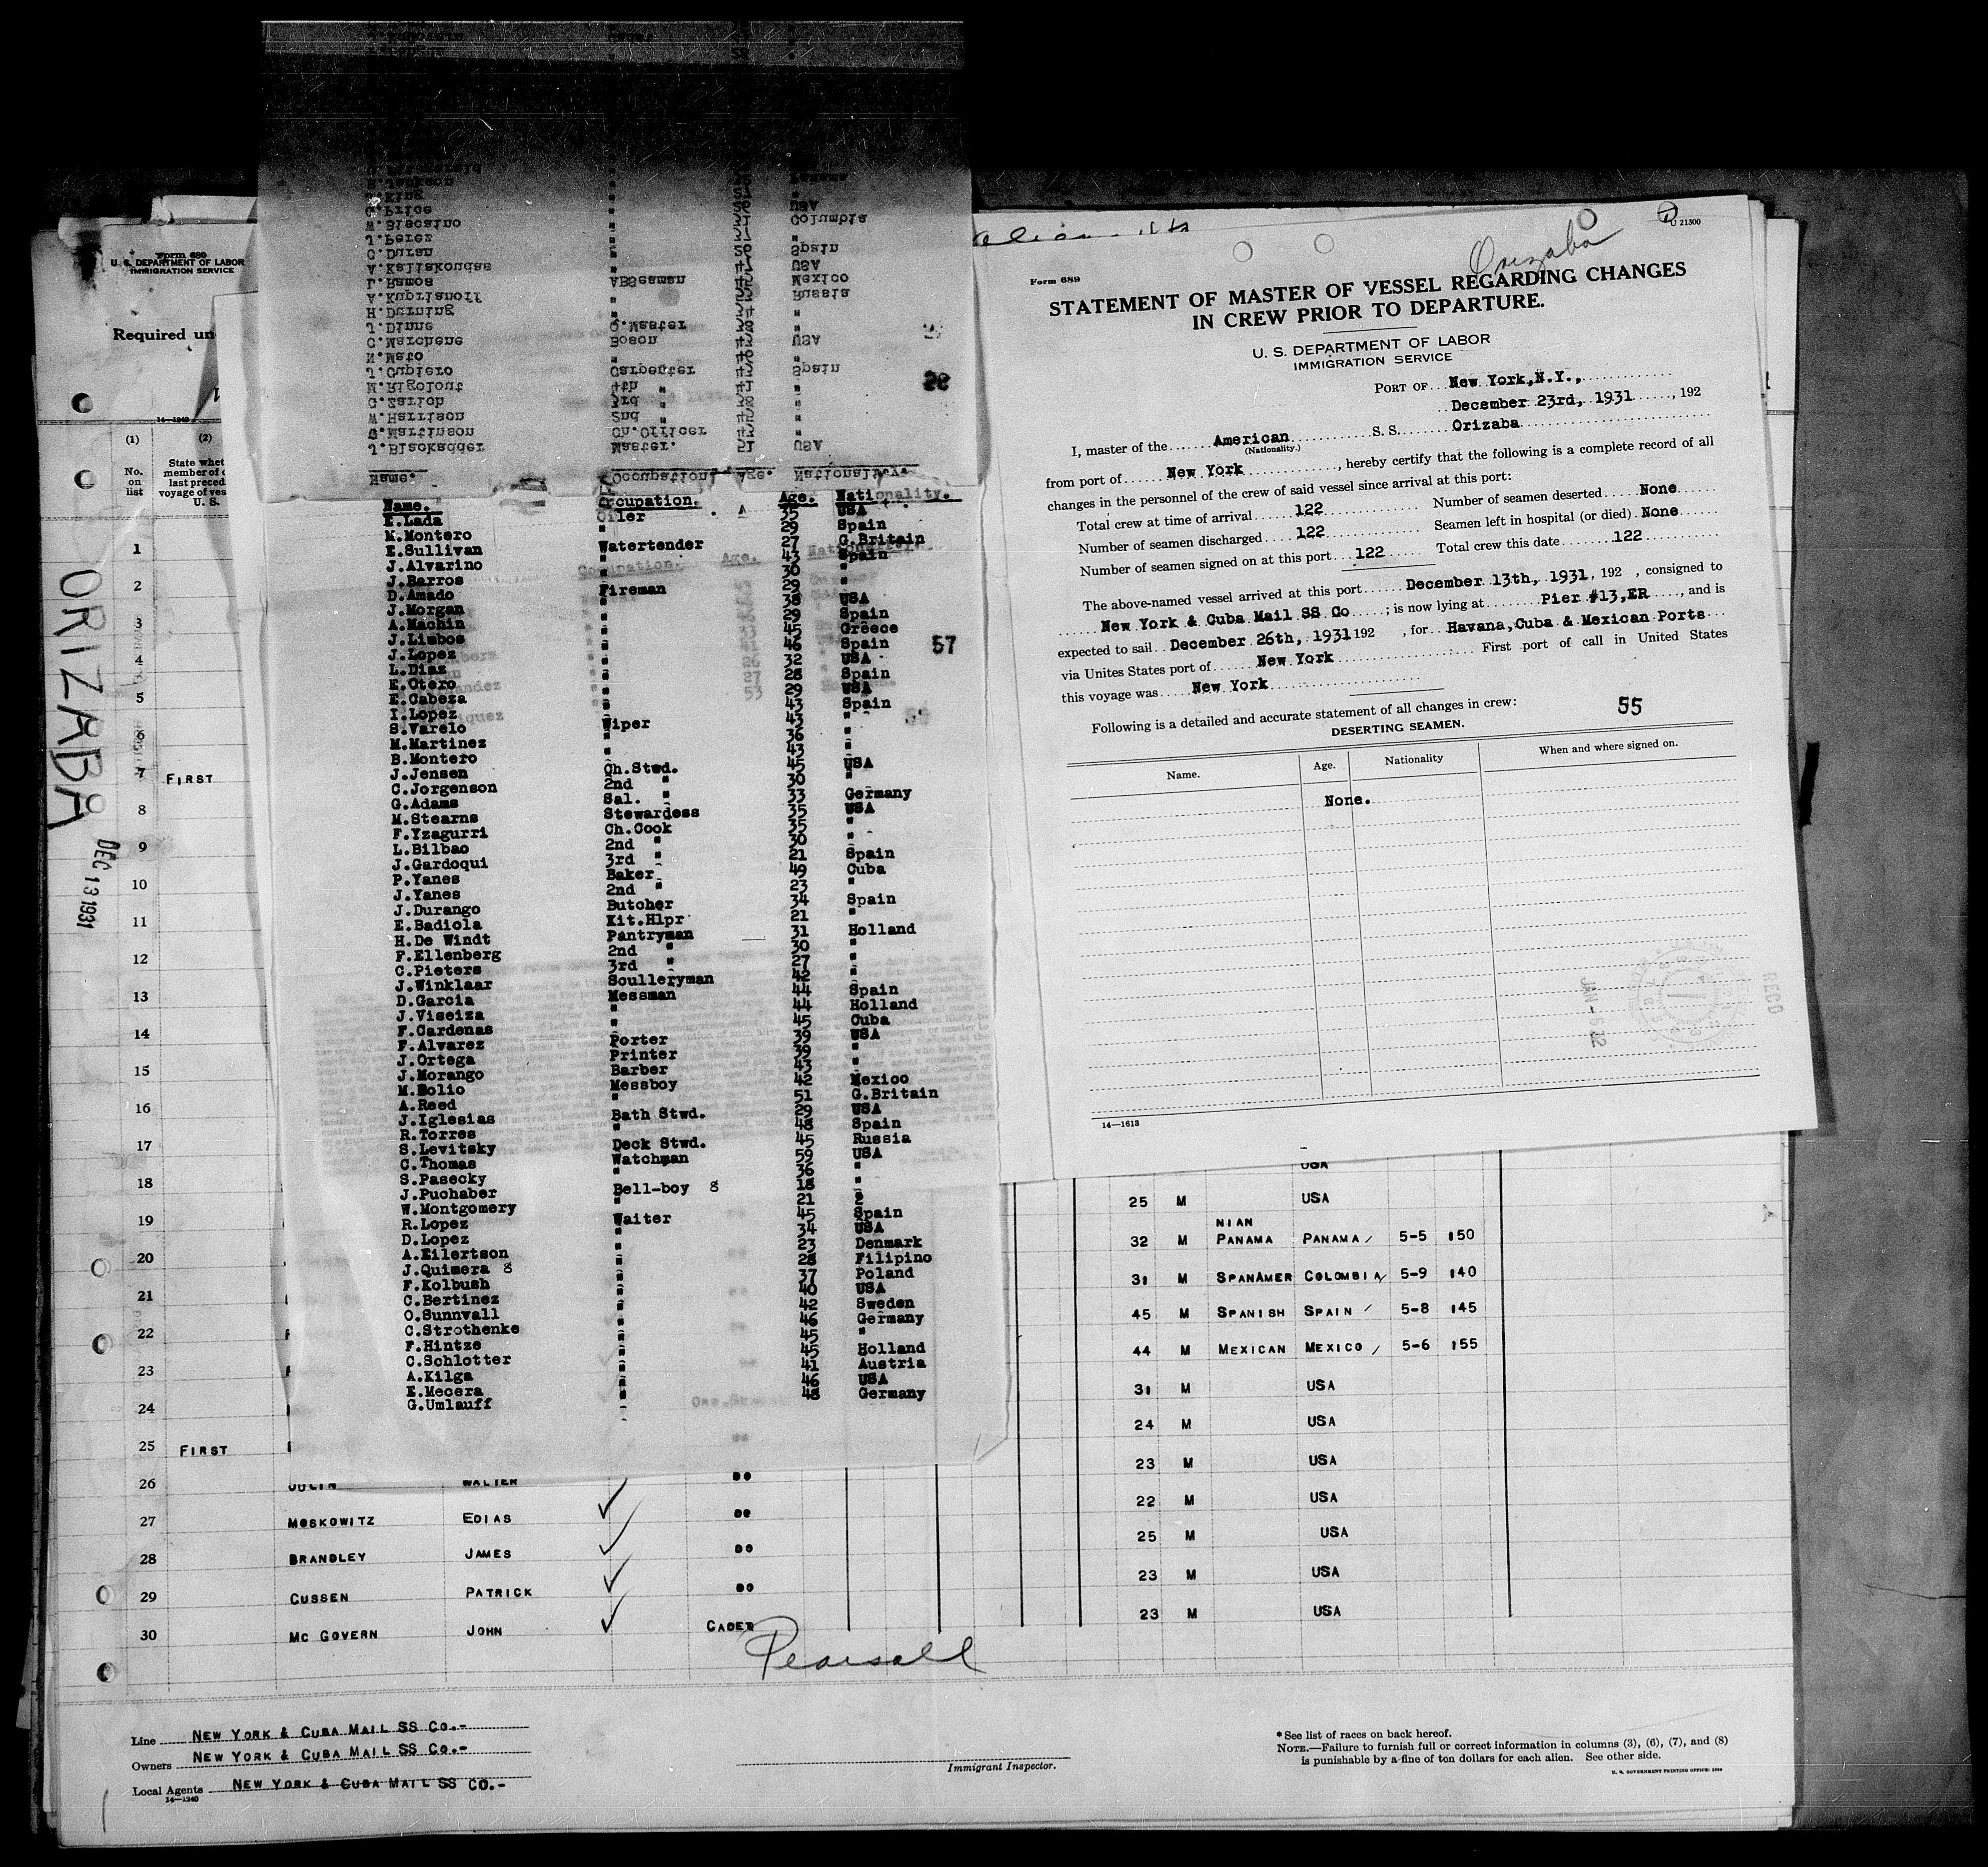 Form 689
U. S. DEPARTMENT OF LABOR
IMMIGRATION SERVICE
Required un
14—1240
(1) (2)
No. on list
State whet
member of
last preced
voyage of ves
U. S.
ORIZABA
DEC 13 1931
W.Biscaino " 31 Columbia
J.Perez " 37 "
C.Duran " 26 Spain
A.Kaliakoudas " 47 USA
L.Ramos ABSeaman 45 Mexico
A.Kuprianoff " Russia
H.Durning " 34 "
J.Dinne Q.Master 38 "
C.Marchene Boson 43 USA
N.Mato " 46 "
J.Cupiero Carpenter 43 Spain
M.Rigolout 4th " 41 "
C.Zarich 3rd " 38 "
W.Harrison 2nd " 45 "
G.Martinson Ch.Officer 43 "
J.Blackadder Master. 51 USA
Name. Occupation. Age. Nationality.
56
Name. Occupation. Age. Nationality.
E.Lada Oiler 35 USA
M.Montero " 29 Spain
E.Sullivan Watertender 27 G.Britain
J.Alvarino " 43 Spain
J.Barros " 30 "
D.Amado Fireman 29 "
J.Morgan " 38 USA
A.Machin " 29 Spain
J.Limbos " 45 Greece
J.Lopez " 46 Spain
57
L.Diaz " 32 USA
E.Otero " 28 Spain
E.Cabeza " 29 USA
I.Lopez " 43 Spain
S.Varelo Wiper 43 "
M.Martinez " 36 "
B.Montero " 43 "
J.Jensen Ch.Stwd. 45 USA
C.Jorgenson 2nd " 30 "
G.Adams Sal. " 33 Germany
M.Stearns Stewardess 35 USA
F.Yzagurri Ch.Cook 35 "
L.Bilbao 2nd " 30 "
J.Gardoqui 3rd " 21 Spain
P.Yanes Baker 49 Cuba
J.Yanes 2nd " 23 "
J.Durango Butcher 34 Spain
E.Badiola Kit.Hlpr 21 "
H.De Windt Pantryman 31 Holland
F.Ellenberg 2nd " 30 "
C.Pieters 3rd " 27 "
J.Winklaar Sculleryman 42 "
D.Garcia Messman 44 Spain
J.Viseiza " 44 Holland
F.Cardenas " 45 Cuba
F.Alvarez Porter 39 USA
J.Ortega Printer 39 "
J.Morango Barber 43 "
M.Bolio Messboy 42 Mexico
A.Reed " 51 G.Britain
J.Iglesias Bath Stwd. 29 USA
R.Torres " 48 Spain
S.Levitsky Deck Stwd. 45 Russia
C.Thomas Watchman 59 USA
S.Pasecky " 36 "
J.Puchaber Bell-boy 8 18 "
W.Montgomery " 21 "
R.Lopez Waiter 45 Spain
D.Lopez " 34 USA
A.Eilertson " 23 Denmark
J.Quimera 8 " 28 Filipino
F.Kolbush " 37 Poland
C.Bertinez " 40 USA
O.Sunnvall " 42 Sweden
C.Strothenke " 46 Germany
F.Hintze " 45 "
C.Schlotter " 45 Holland
A.Kilga " 41 Austria
E.Mecera " 46 USA
G.Umlauff " 48 Germany
U 21300
Orizaba
Form 689
STATEMENT OF MASTER OF VESSEL REGARDING CHANGES
IN CREW PRIOR TO DEPARTURE.
U. S. DEPARTMENT OF LABOR
IMMIGRATION SERVICE
PORT OF New York,N.Y.,
December 23rd, 1931, 192
I, master of the American S. S. Orizaba
(Nationality.)
from port of New York, hereby certify that the following is a complete record of all
changes in the personnel of the crew of said vessel since arrival at this port:
Total crew at time of arrival 122 Number of seamen deserted None
Number of seamen discharged 122 Seamen left in hospital (or died) None
Number of seamen signed on at this port 122 Total crew this date 122
The above-named vessel arrived at this port December 13th, 1931, 192 , consigned to
New York & Cuba Mail SS Co; is now lying at Pier #13,ER, and is
expected to sail December 26th, 1931 192 , for Havana,Cuba & Mexican Ports
via Unites States port of New York First port of call in United States
this voyage was New York
Following is a detailed and accurate statement of all changes in crew: 55
DESERTING SEAMEN.
Name. Age. Nationality When and where signed on.
None.
RECD
14—1613
1
2
3
4
5
6
7 FIRST
8
9
10
11
12
13
14
15
16
17
18
USA
19 25 M USA
20 32 M NIAN PANAMA PANAMA 5-5 150
21 31 M SPANAMER COLOMBIA 5-9 140
22 45 M SPANISH SPAIN 5-8 145
23 44 M MEXICAN MEXICO 5-6 155
24 31 M USA
25 FIRST 24 M USA
26 WALTER DO 23 M USA
27 MOSKOWITZ EDIAS DO 22 M USA
28 BRANDLEY JAMES DO 25 M USA
29 CUSSEN PATRICK DO 23 M USA
30 MC GOVERN JOHN CADET 23 M USA
Pearsall
Line NEW YORK & CUBA MAIL SS CO.-
Owners NEW YORK & CUBA MAIL SS CO.-
Local Agents NEW YORK & CUBA MAIL SS CO.-
14—1240
Immigrant Inspector.
*See list of races on back hereof.
NOTE.—Failure to furnish full or correct information in columns (3), (6), (7), and (8)
is punishable by a fine of ten dollars for each alien. See other side.
U. S. GOVERNMENT PRINTING OFFICE: 1929